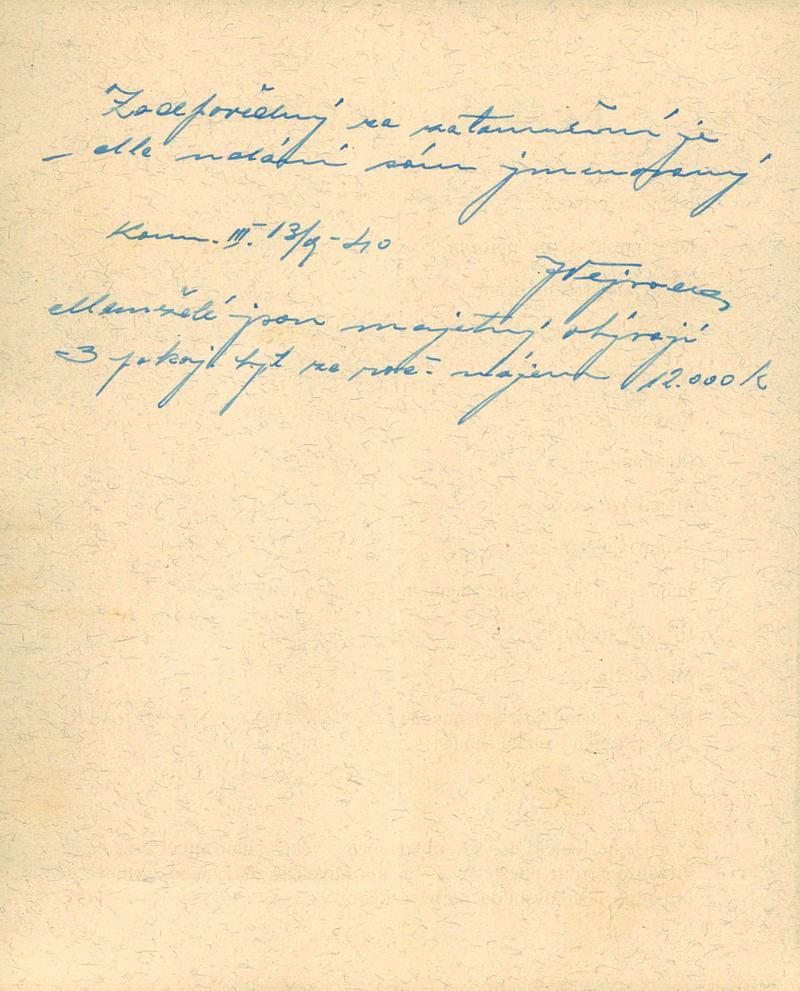 Zodpovědný za zatemnění je
– dle udání sám jmenovaný
Kom. III. 13/9-40
Manželé jsou majetný obývají
3 pokoj. byt za roč. nájem 12.000 K